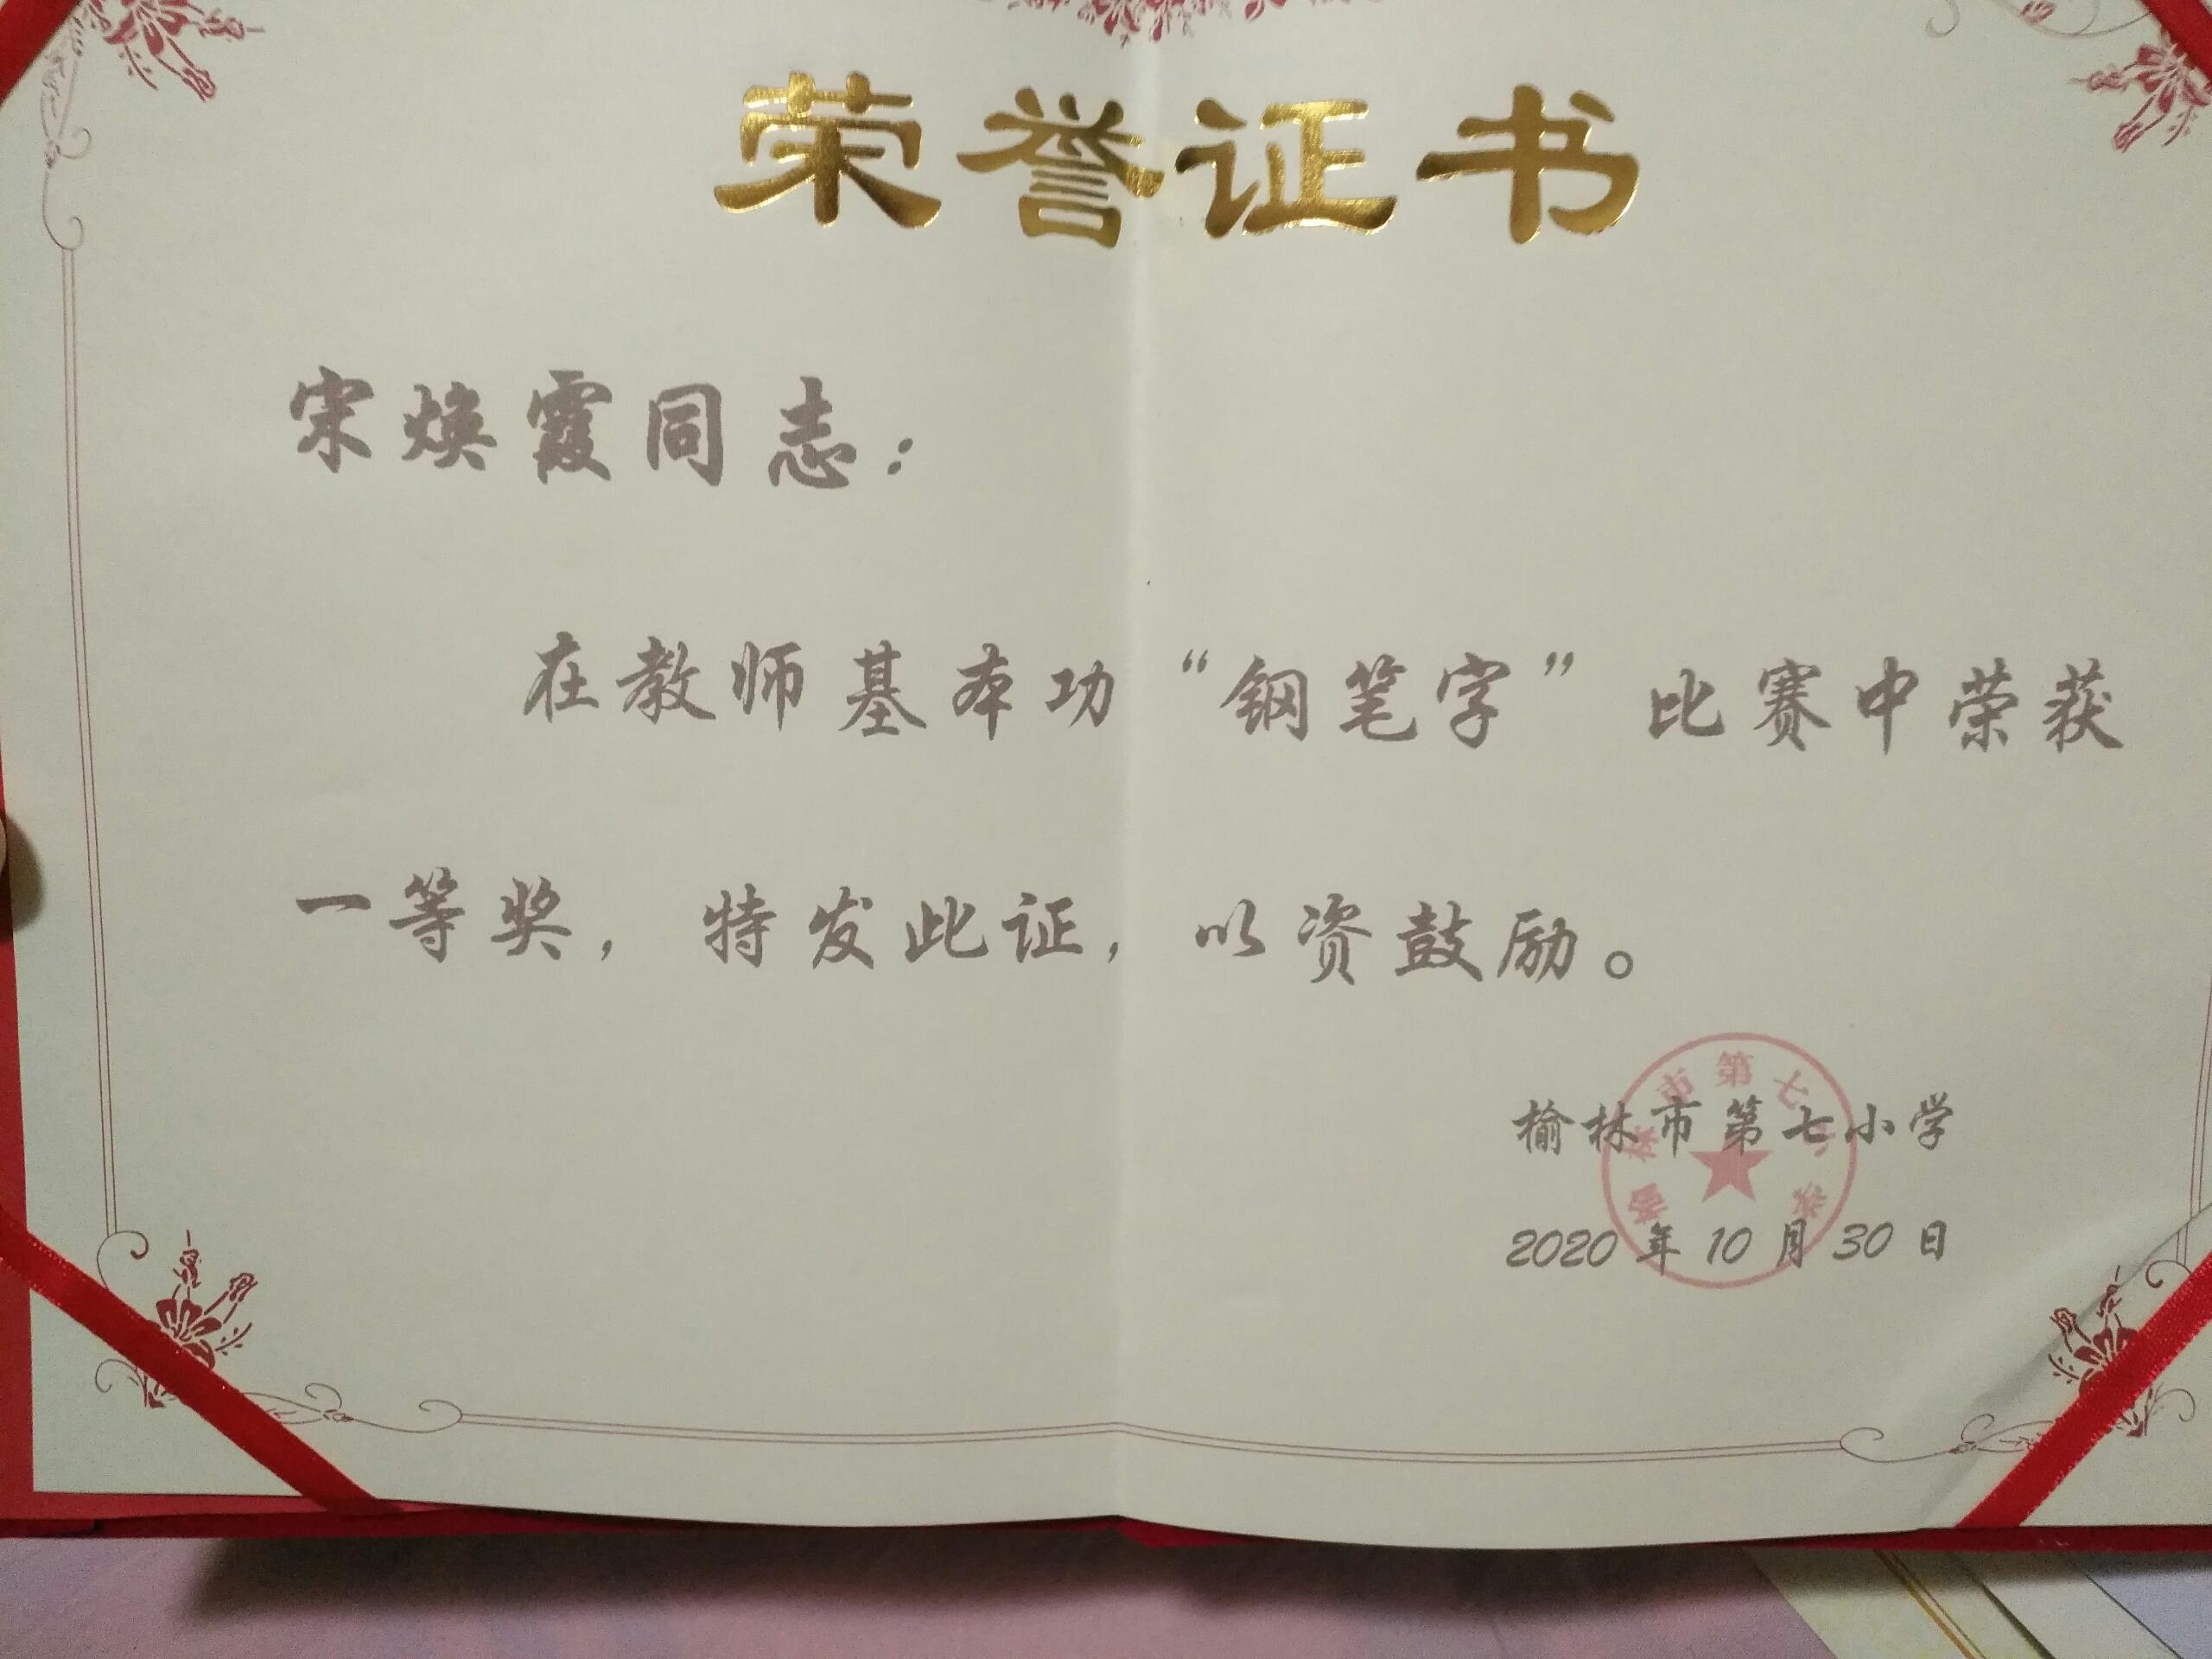 荣誉证书
宋焕霞同志：
在教师基本功“钢笔字”比赛中荣获
一等奖，特发此证，以资鼓励。
榆林市第七小学
2020年10月30日
榆林市第七小学